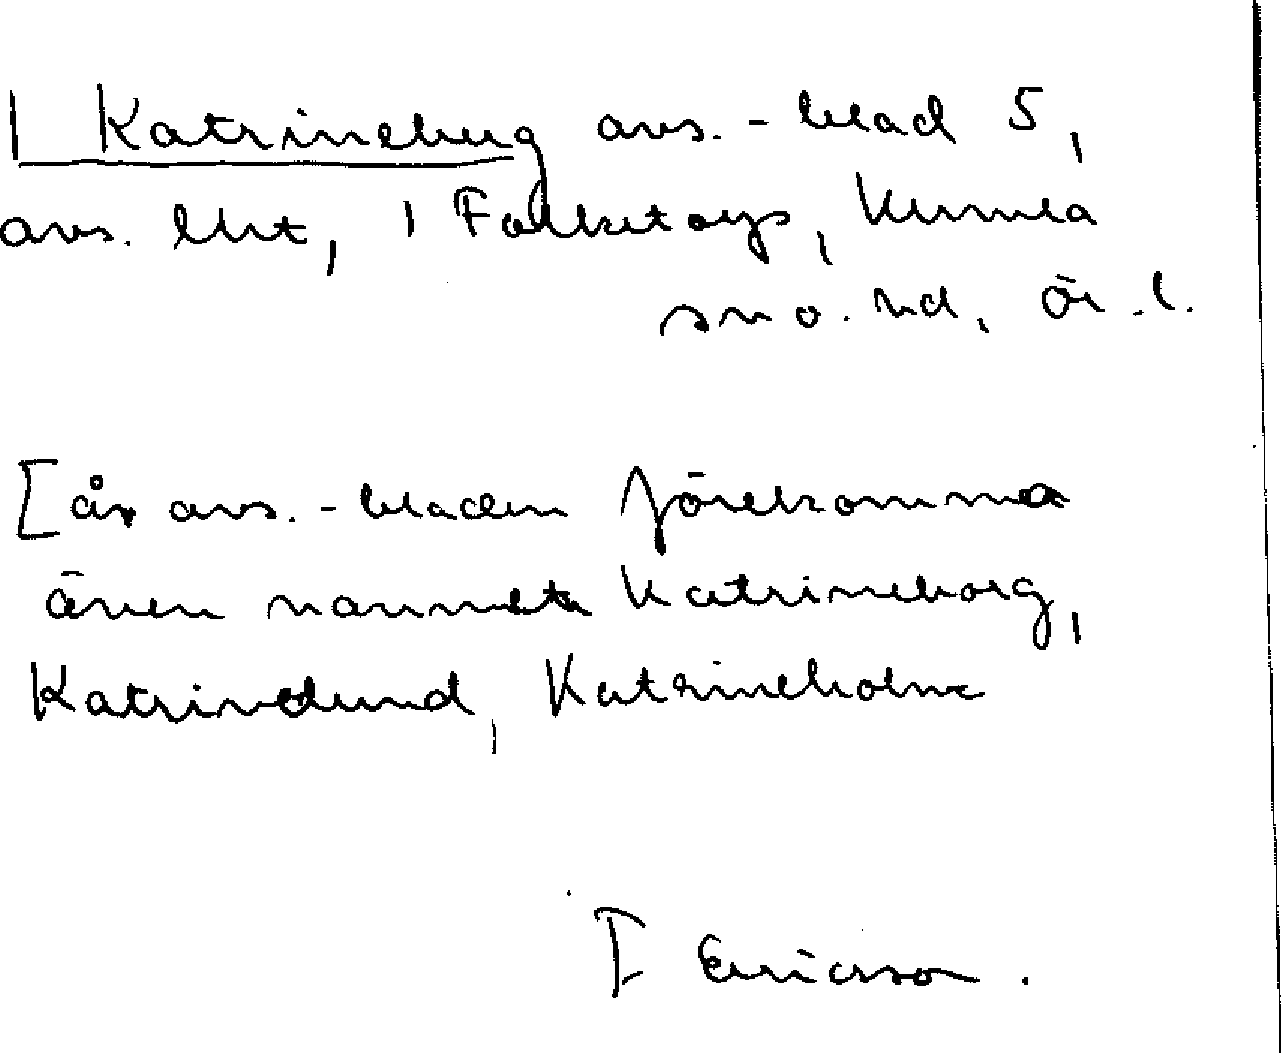 | Katrineberg avs.-blad 5,
avs. lht, i Falketorp, Kumla
sn o. hd, Ör. l.
[å avs.-bladen förekomma
även namnet Katrineborg,
Katrinelund, Katrineholm
Ericson.